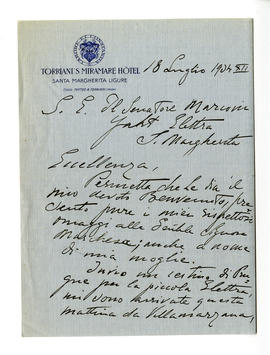 TORRIANI'S MIRAMARE HÔTEL
SANTA MARGHERITA LIGURE
18 Luglio 1934 XII
S. E. Il Senatore Marconi
Yacht Elettra
S. Margherita
Eccellenza,
Permetta che Le dia il
mio devoto Benvenuto, pre
sento pure i miei rispettosi
omaggi alla Gentile Signora
Marchesa, anche a nome
di mia moglie.
Invio un cestino di
que per la piccola Elettra
mi sono arrivate questa
mattina da Villamarzana,